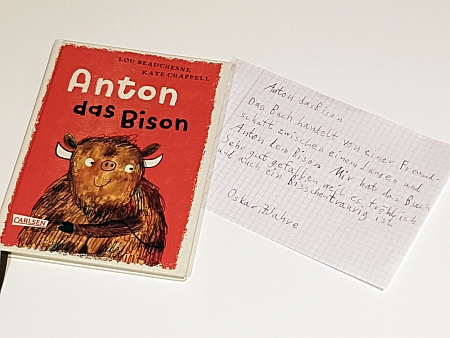 LOU BEAUCHESNE
KATE CHAPPELL
Anton
das Bison
CARLSEN
Anton das Bison
Das Buch handelt von einer Freund-
schaft zwischen einem Jungen und
Anton den Bison. Mir hat das Buch
Sehr gut gefallen weil es fröhlich
und auch ein Bisschen traurig ist
Oskar 7 Jahre